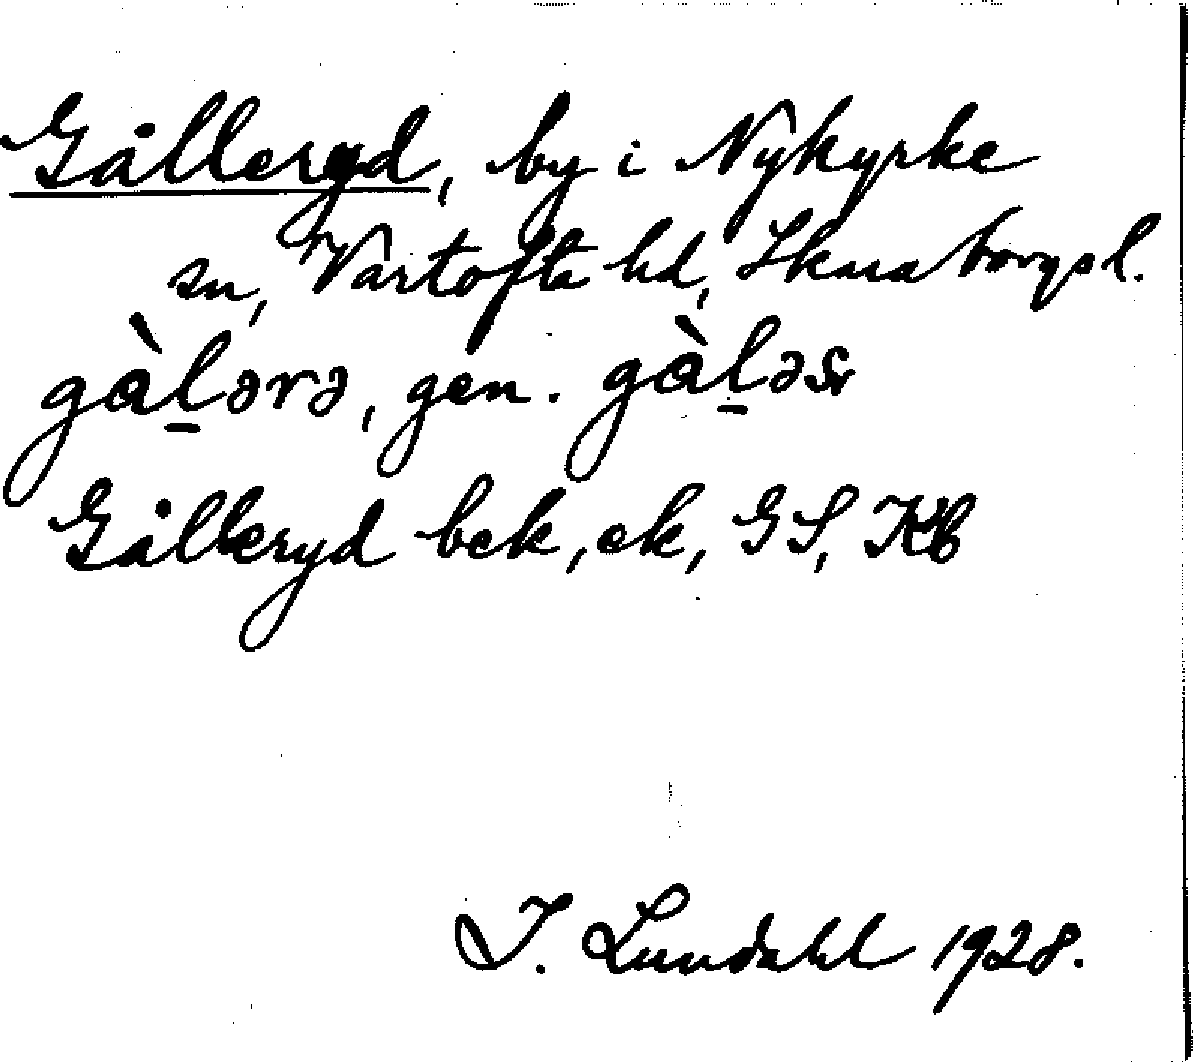 Gålleryd, by i Nykyrke
sn, Vartofta hd, Skaraborgs l.
gàl̠ərə, gen. gàl̠əsr
Gålleryd bek, ek, GS, Kb
I. Lundahl 1928.